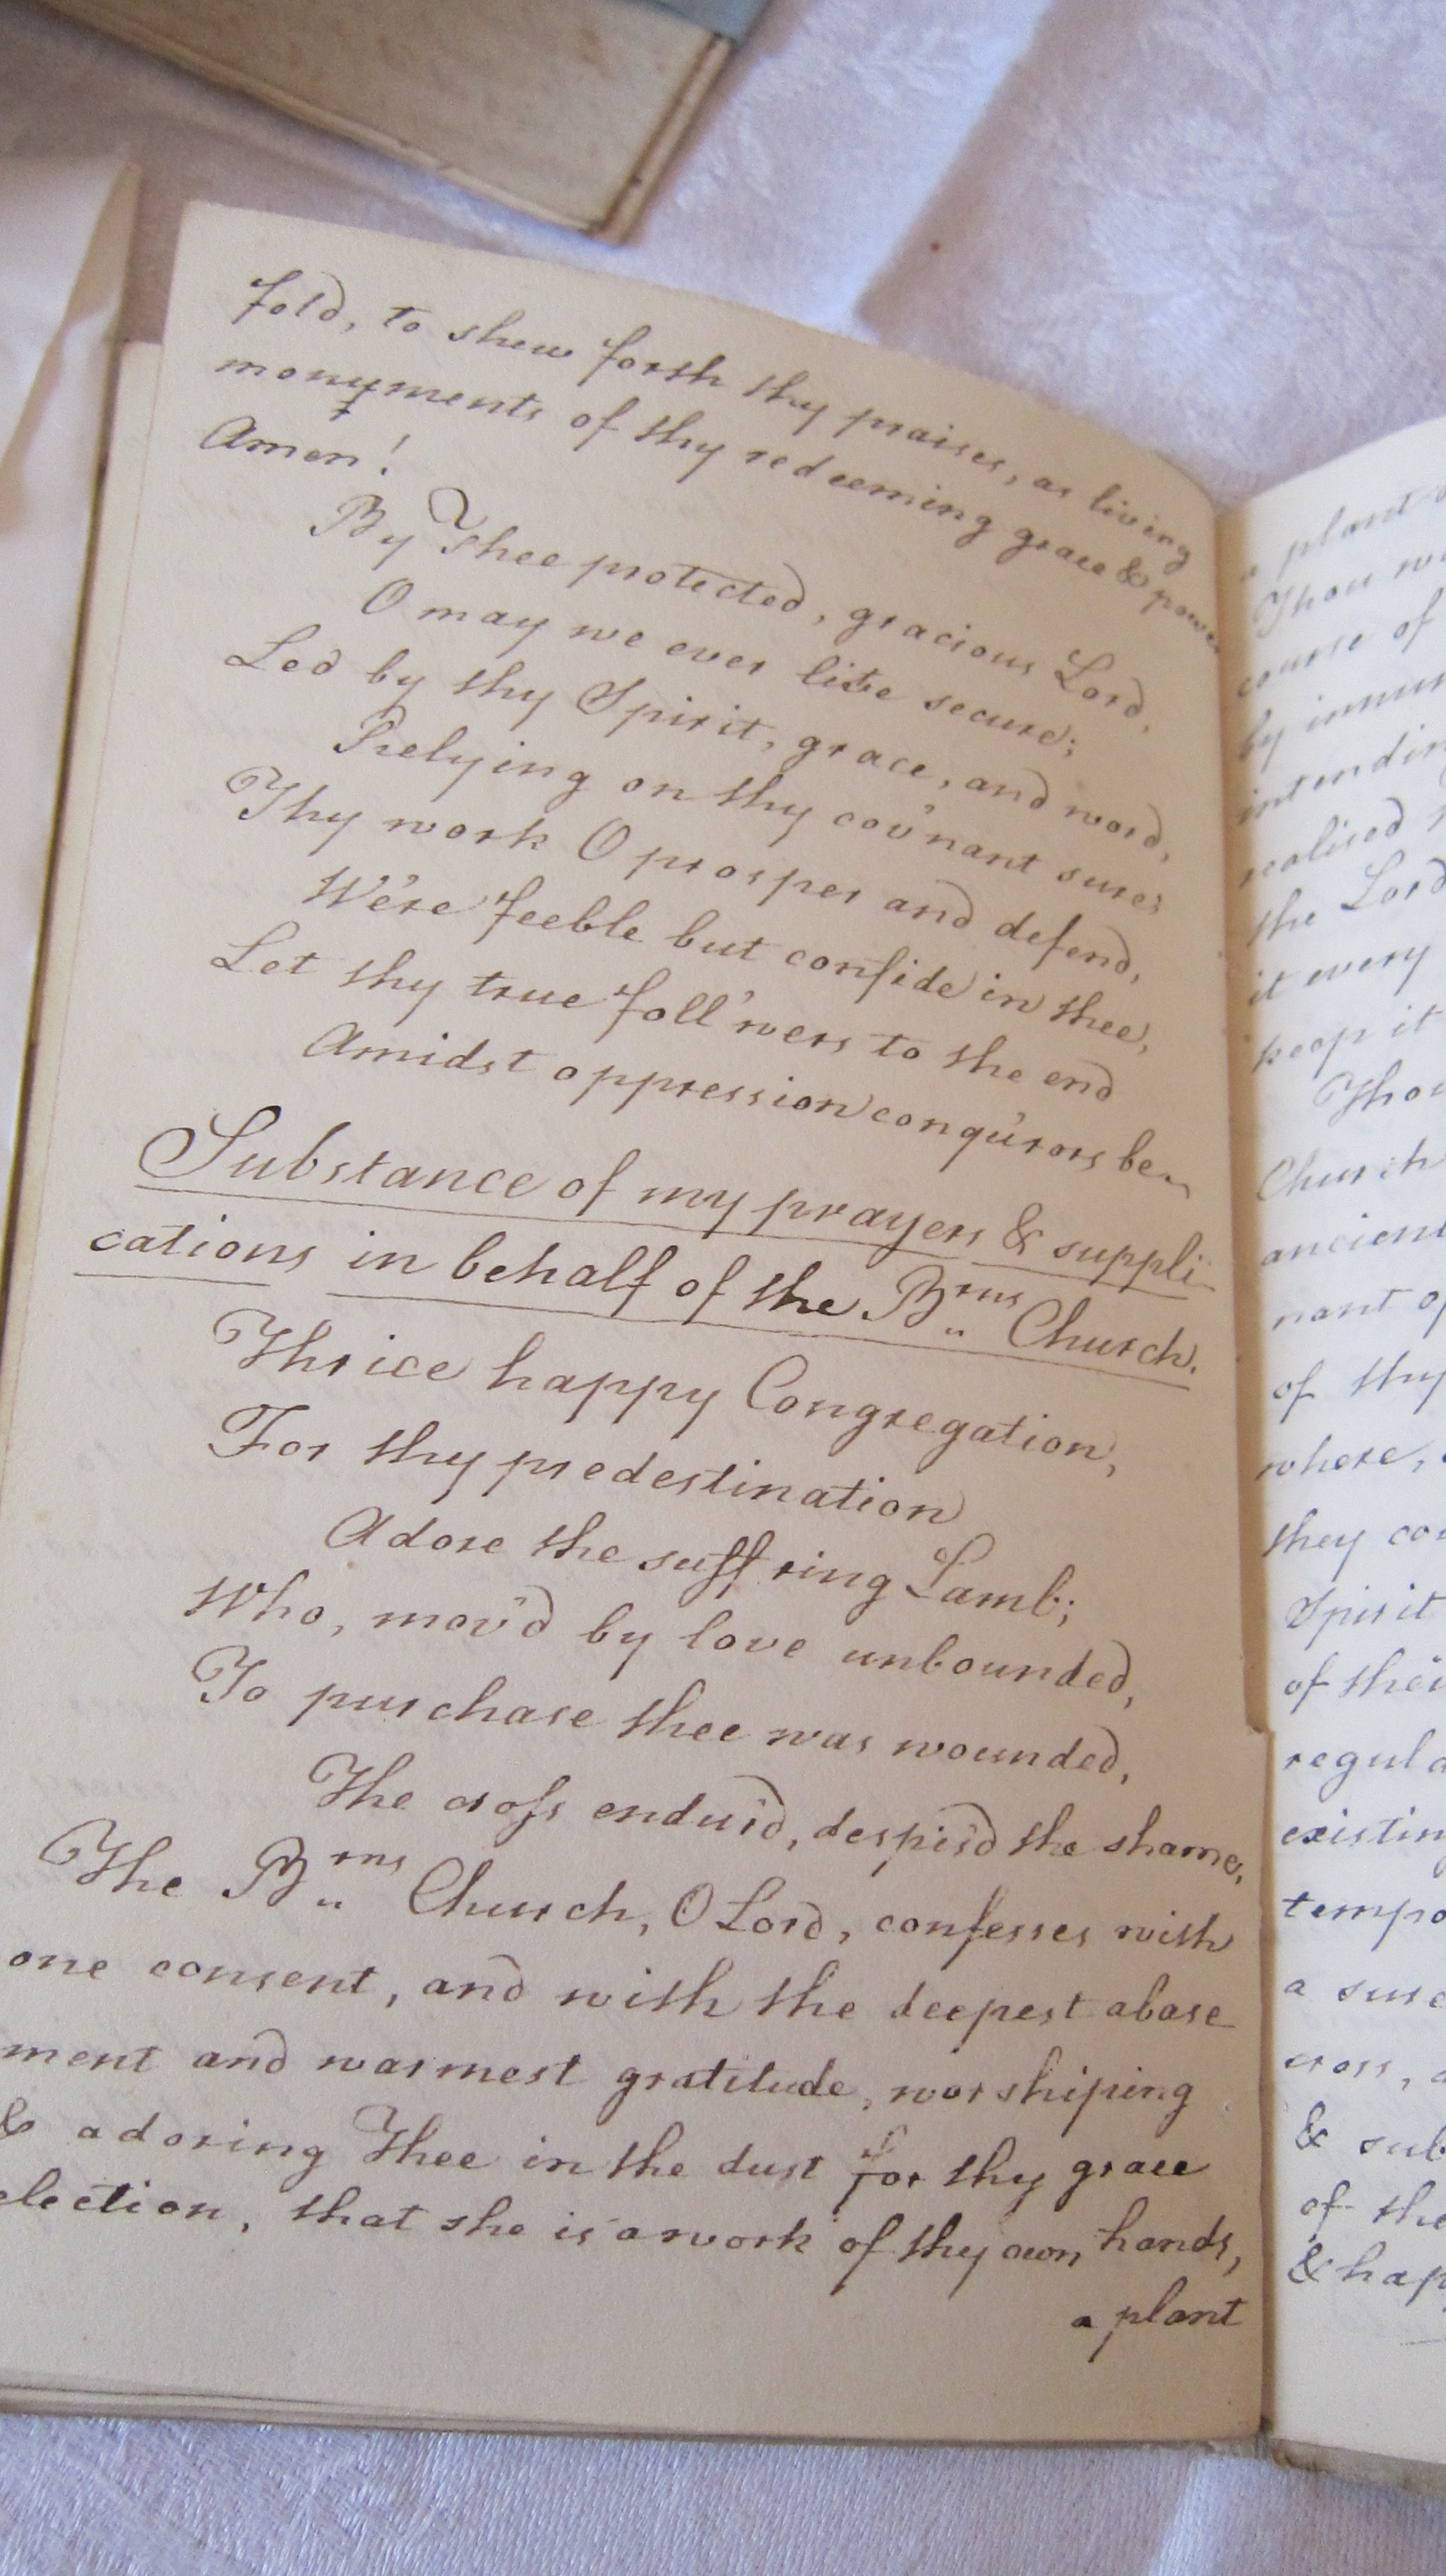 fold, to shew forth thy praises, as living
monuments of thy redeeming grace & power
Amen!
By Thee protected, gracious Lord,
O may we ever live secure;
Led by thy Spirit, grace, and word,
Relying on thy cov'nant sure;
Thy work O prosper and defend,
We're feeble but confide in thee,
Let thy true foll'wers to the end
Amidst oppression conqu'rors be
Substance of my prayers & suppli-
cations in behalf of the Brns Church.
Thrice happy Congregation,
For thy predestination
Adore the suff'ring Lamb;
Who, mov'd by love unbounded,
To purchase thee was wounded,
The cross endur'd, despis'd the shame,
The Brns Church, O Lord, confesses with
one consent, and with the deepest abase
ment and warmest gratitude, worshiping
& adoring Thee in the dust for thy grace
election, that she is a work of thy own hands,
a plant
a plant
Thou
course of
by
realised
the Lord
it every
keep it
Thou
Church
ancient
nant of
of thy
where,
they
Spirit
of their
existing
a
cross,
&
of the
&